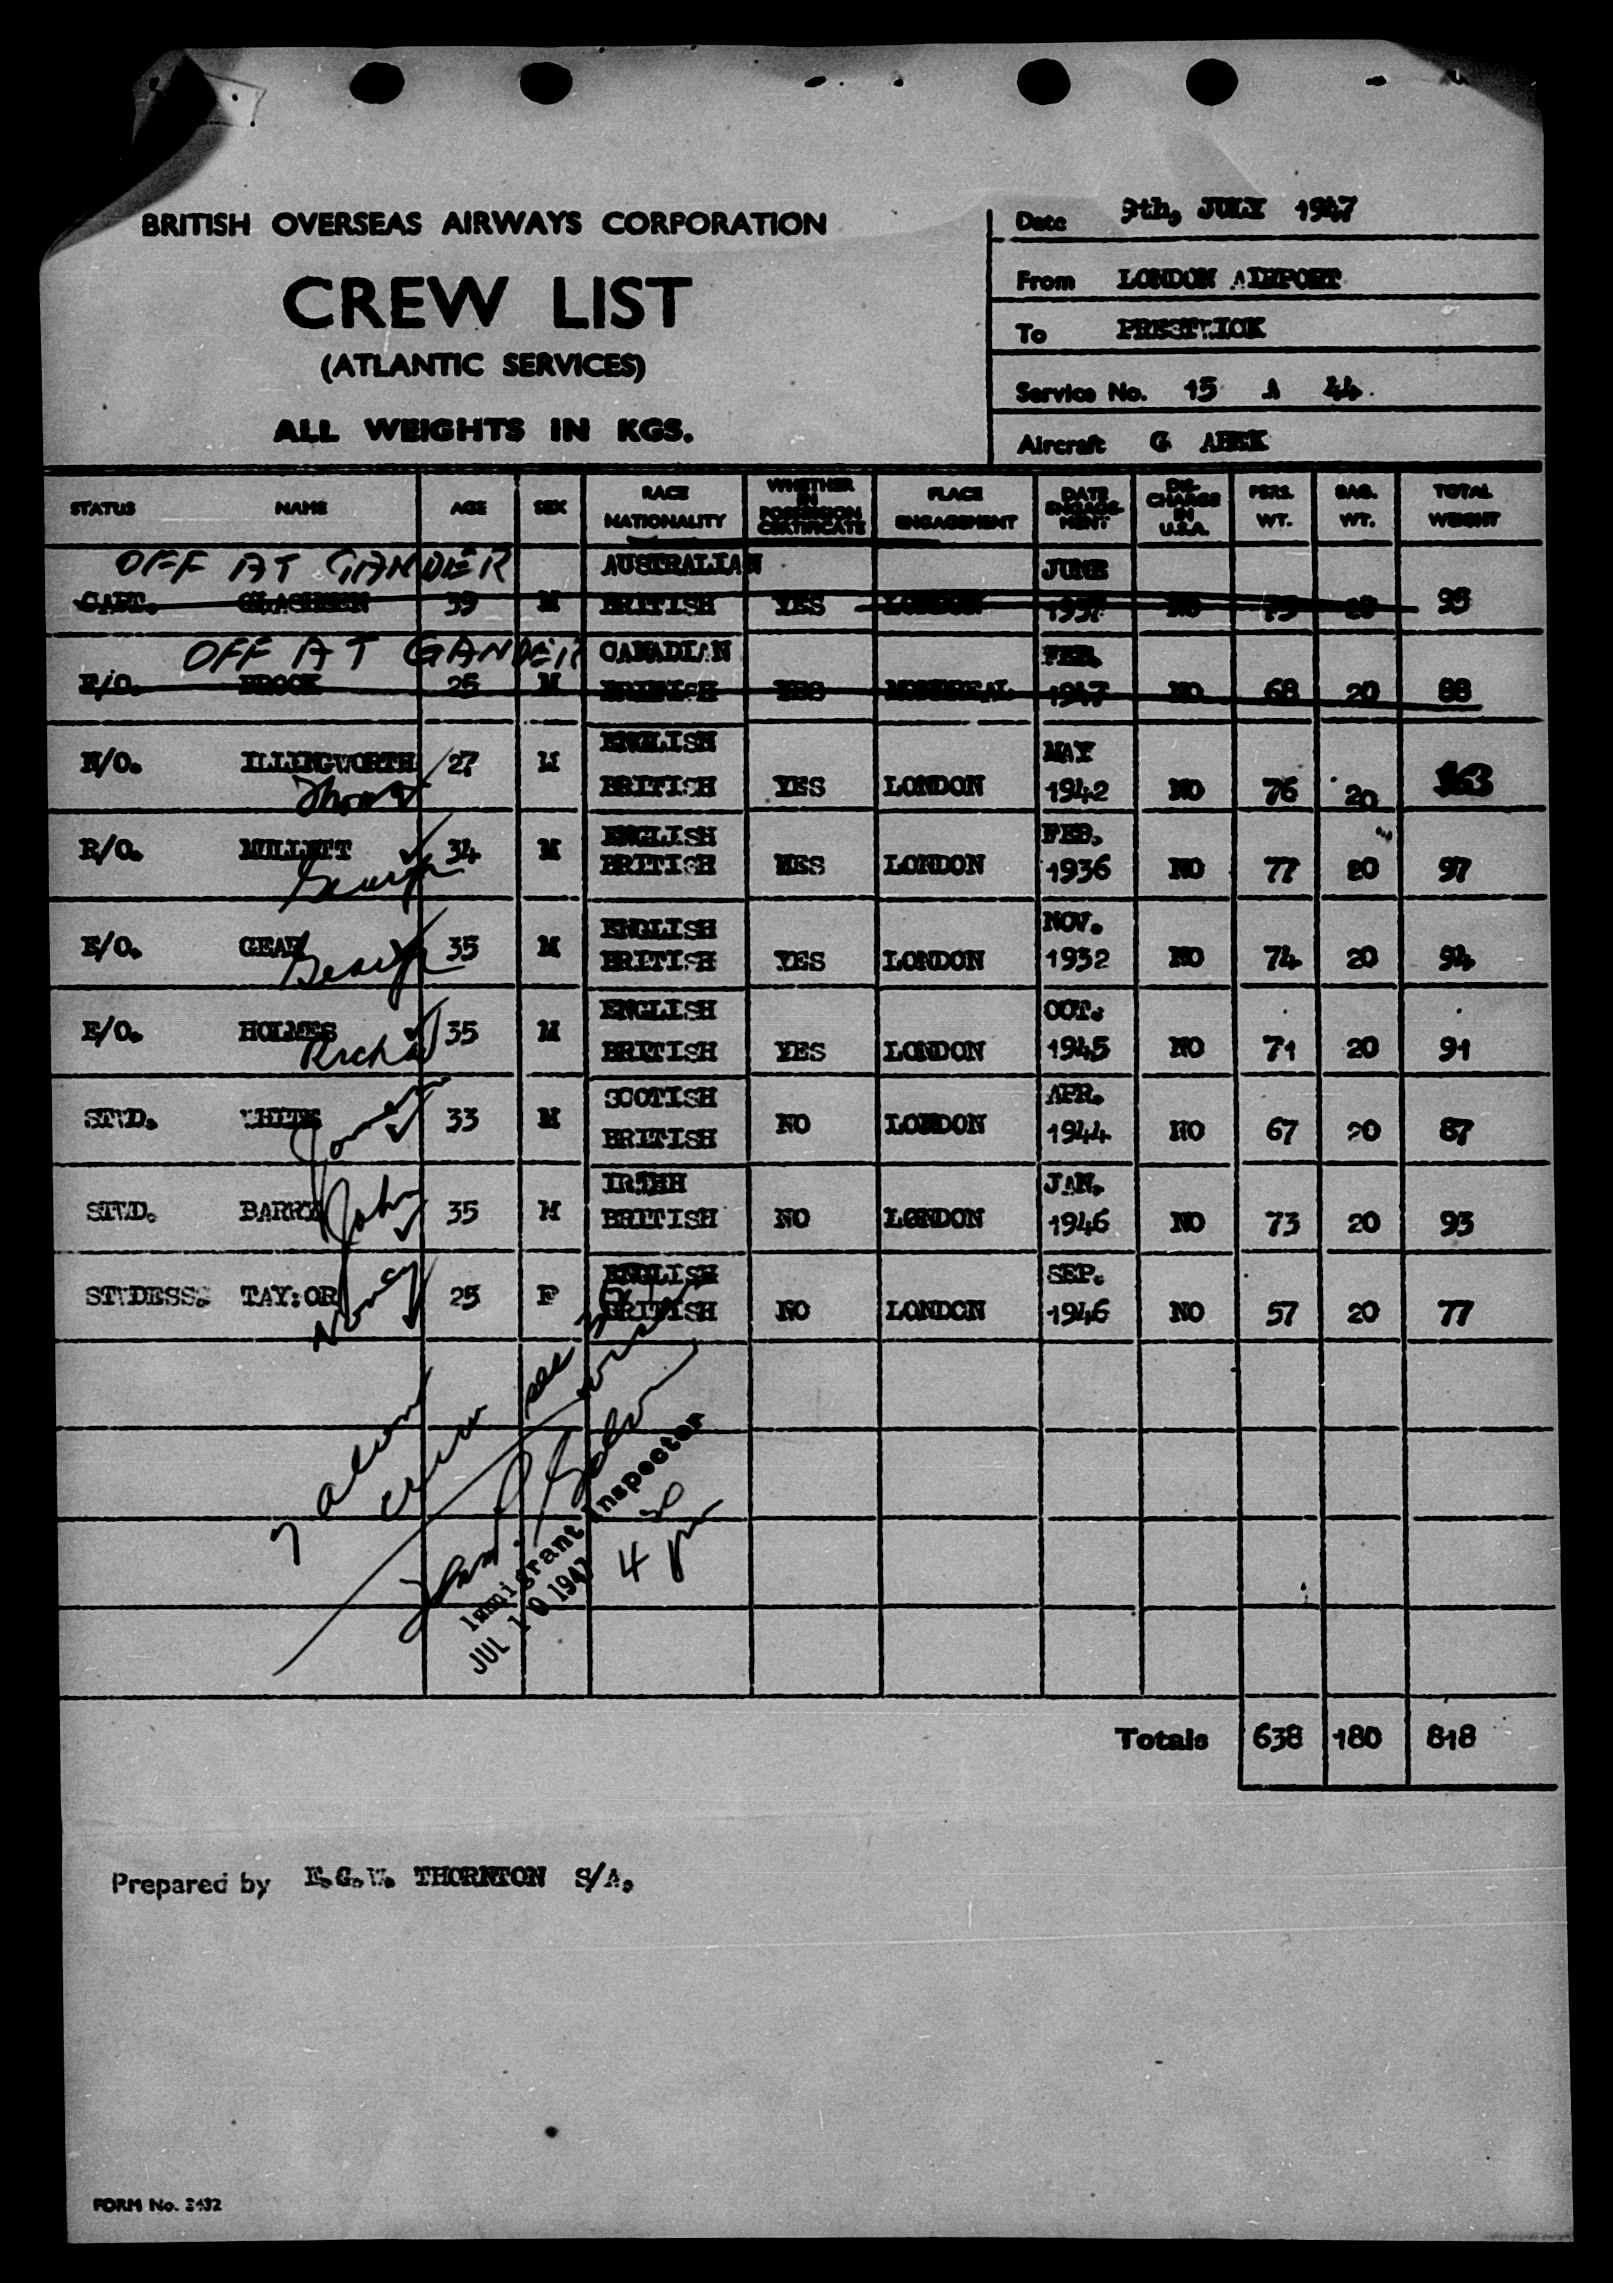 BRITISH OVERSEAS AIRWAYS CORPORATION
CREW LIST
(ATLANTIC SERVICES)
ALL WEIGHTS IN KGS.
Date 9th, JULY 1947
From LONDON AIRPORT
To PRESTWICK
Service No. 15 A 44.
Aircraft G
STATUS NAME AGE SEX RACE NATIONALITY WHETHER IN POSSESSION CERTIFICATE PLACE ENGAGEMENT DATE ENGAGEMENT DISCHARGE IN U.S.A. PERS. WT. BAG. WT. TOTAL WEIGHT
OFF AT GANDER AUSTRALIAN JUNE
CAPT. 39 M BRITISH YES LONDON 1937 NO 75 20 95
OFF AT GANDER CANADIAN FEB.
F/O. BROCK 25 M BRITISH YES MONTREAL 1947 NO 68 20 88
ENGLISH MAY
N/O. ILLINGWORTH 27 M BRITISH YES LONDON 1942 NO 76 20
ENGLISH FEB.
R/O. MILLETT 34 M BRITISH YES LONDON 1936 NO 77 20 97
George
ENGLISH NOV.
E/O. GEAR 35 M BRITISH YES LONDON 1932 NO 74 20 94
George
ENGLISH OCT.
E/O. HOLMES 35 M BRITISH YES LONDON 1945 NO 71 20 91
Richd
SCOTISH APR.
STWD. WHITE 33 M BRITISH NO LONDON 1944 NO 67 20 87
James
IRISH JAN.
STWD. BARRY 35 M BRITISH NO LONDON 1946 NO 73 20 93
John
ENGLISH SEP.
STWDESS. TAY:OR 25 F BRITISH NO LONDON 1946 NO 57 20 77
Nancy
7 alien
crew see
Immigrant Inspector
JUL 10 1947
4 30 pm
Totals 638 180 818
Prepared by E.G.W. THORNTON S/A.
FORM No. 2432